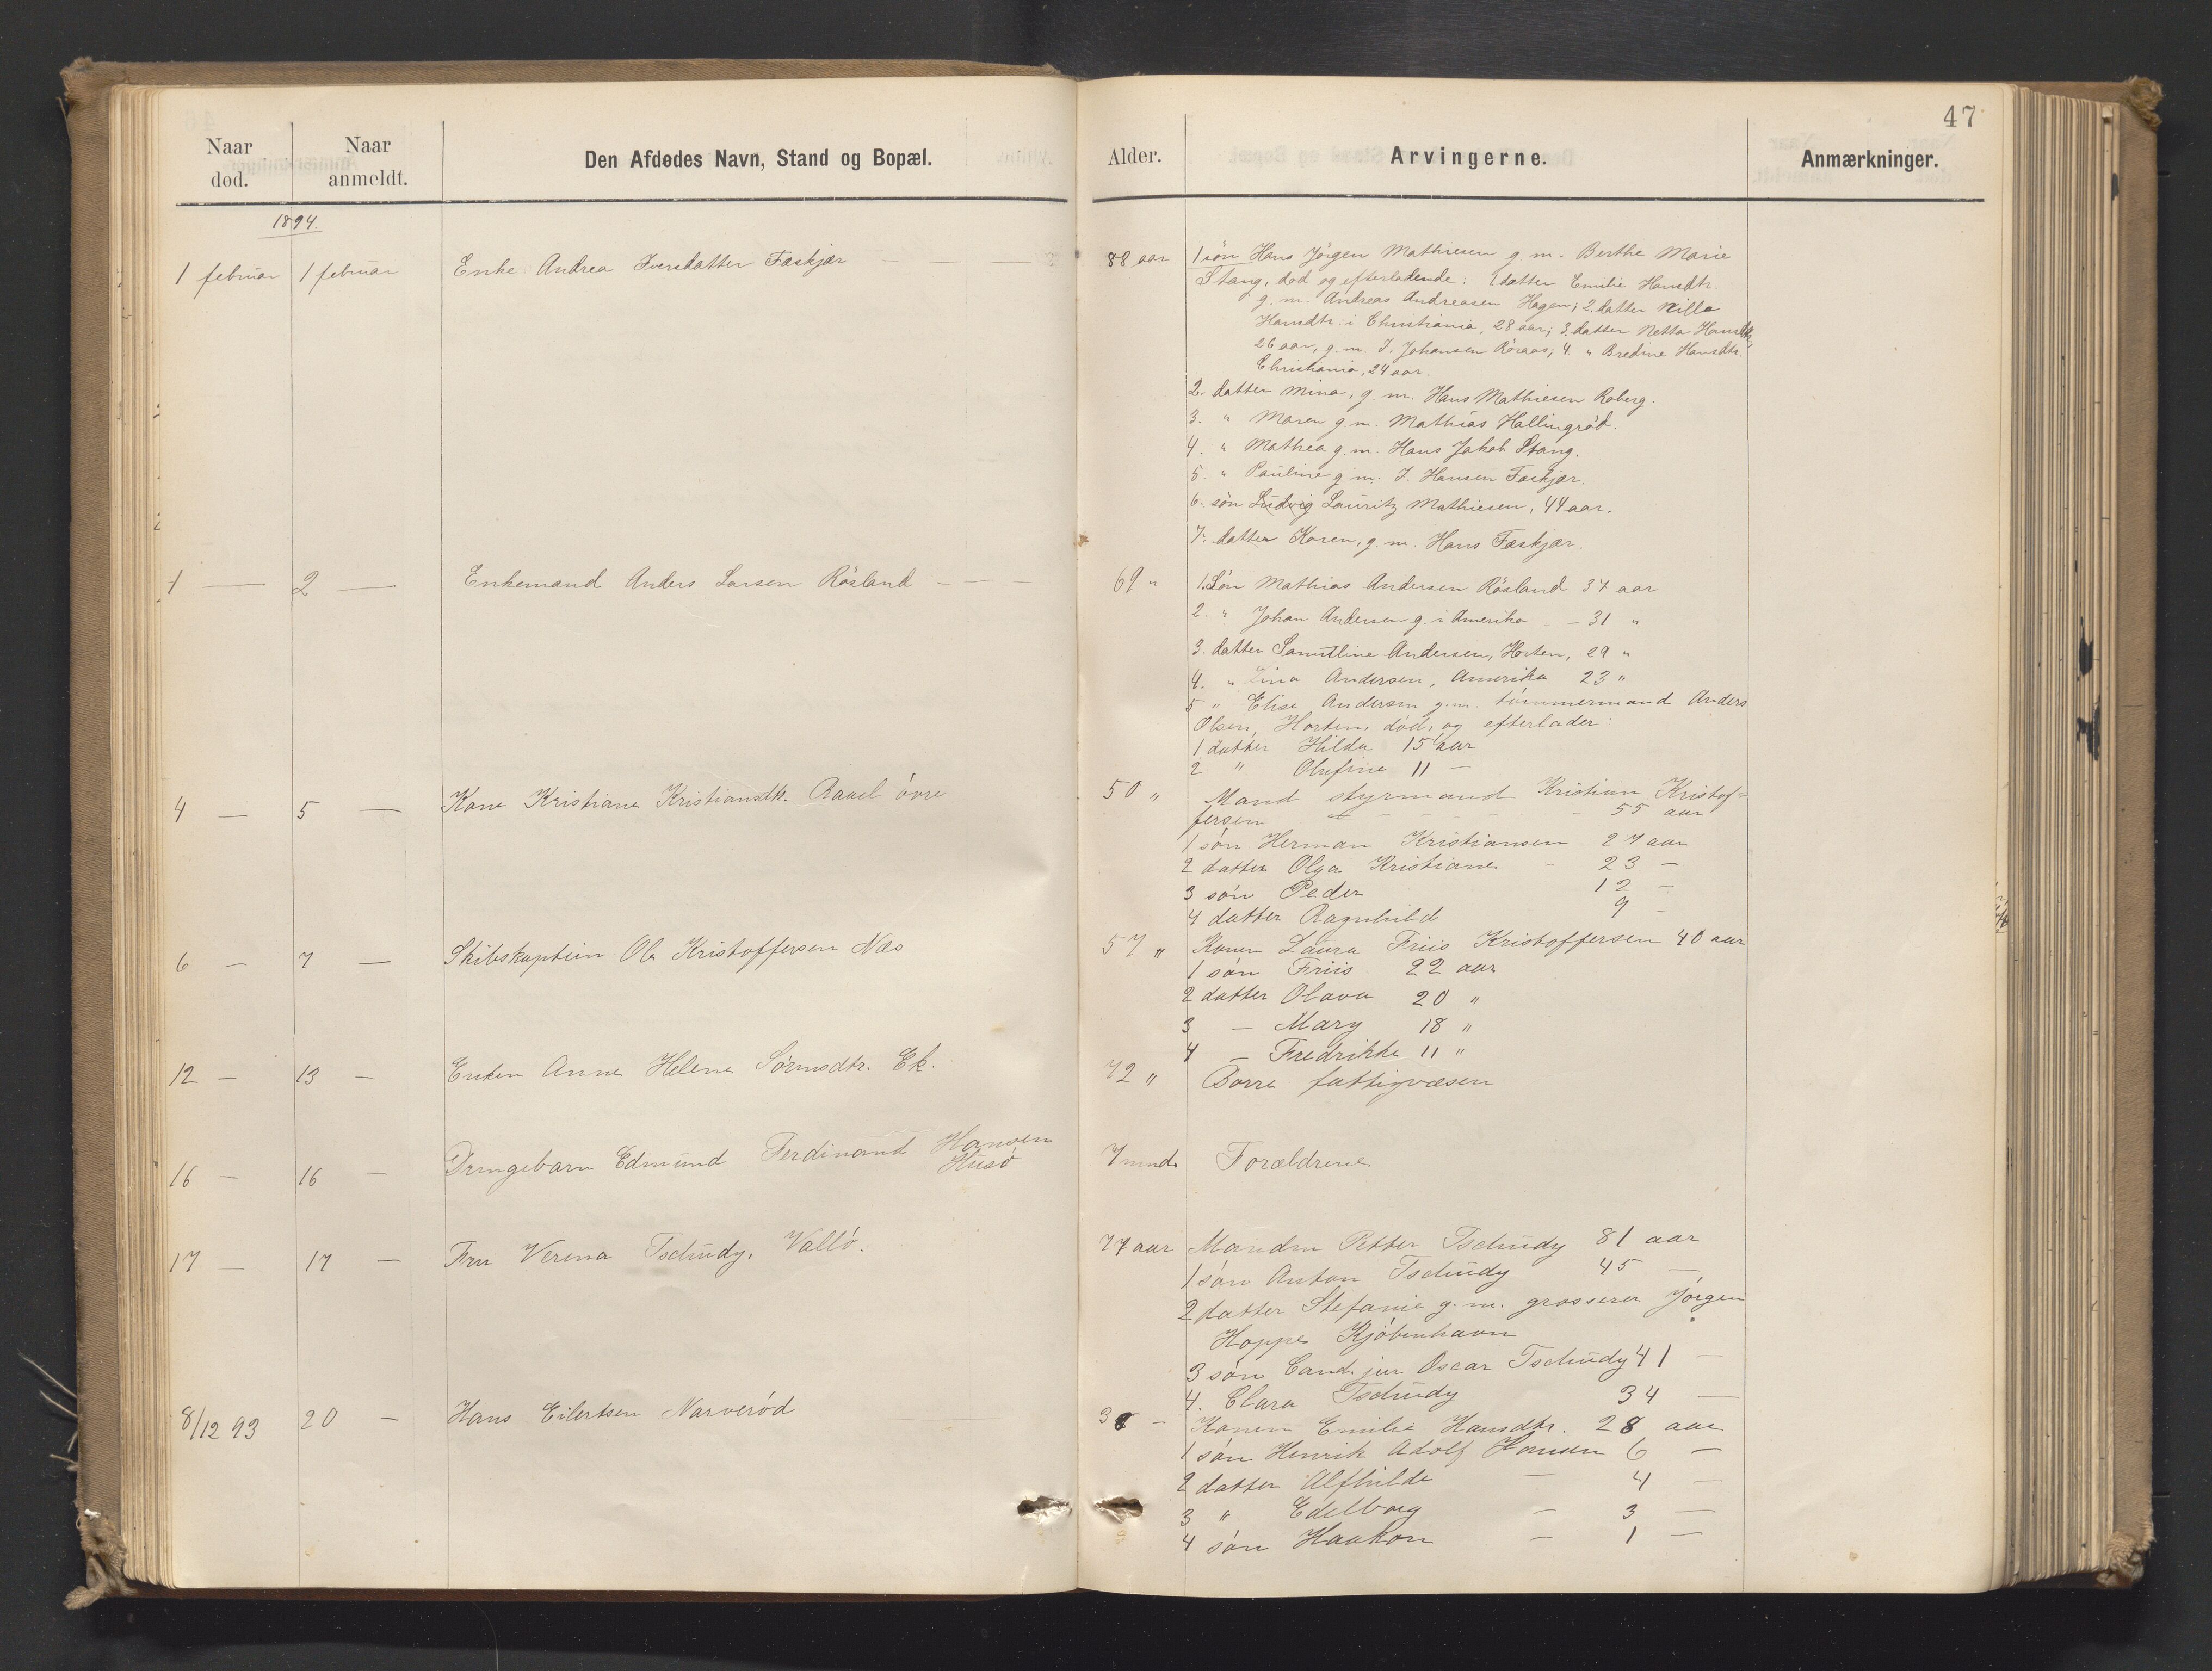 47
Naar død.
Naar anmeldt.
Den Afdødes Navn, Stand og Bopæl.
Alder.
Arvingerne.
Anmærkninger.
1894.
1 februar 1 februar Enke Andrea Iversdatter Fæskjær — — —
88 aar
1 søn Hans Jørgen Mathiesen g. m. Berthe Marie
Stang, død og efterladende: 1 datter Emilie Hansdtr.
g. m. Andreas Andreasen Hagen; 2. datter Nilla
Hansdtr. i Christiania, 28 aar; 3. datter Netta Hansdtr.
26 aar, g. m. J. Johansen Röraas; 4. " Bredine Hansdtr.
Christiania, 24 aar.
2. datter Mina, g. m. Hans Mathiesen Roberg.
3. " Maren g. m. Mathias Hallingrød.
4. " Mathea g. m. Hans Jakob Stang.
5. " Pauline g. m. J. Hansen Fæskjær.
6. søn Ludvig Lauritz Mathiesen, 44 aar.
7. datter Karen, g. m. Hans Fæskjær.
1 — 2 — Enkemand Anders Larsen Rösland — — —
69 "
1. Søn Mathias Andersen Rösland 37 aar
2. " Johan Andersen g. i Amerika — — 31 "
3. datter Andersen, Horten, 29 "
4. " Lina Andersen, Amerika 23 "
5 " Elise Andersen g. m. tömmermand Anders
Olsen, Horten, död, og efterlader:
1 datter Hilda 15 aar
2 " Olufine 11 —
4 — 5 — Kone Kristiane Kristiansdtr. Raael övre
50 "
Mand styrmand Kristian Kristof=
fersen — — — 55 aar
1 søn Herman Kristiansen 27 aar
2 datter Olga Kristiane — 23 —
3 søn Peder 12 —
4 datter Ragnhild 9 —
6 — 7 — Skibskaptein Ole Kristoffersen Næs
57 "
Konen Laura Friis Kristoffersen 40 aar
1 søn Friis 22 aar
2 datter Olava 20 "
3 — Mary 18 "
4 — Fredrikke 11 "
12 — 13 — Enken Anne Helene Sörensdtr. Ek.
72 "
Borre fattigvæsen
16 — 16 — Drengebarn Edmund Ferdinand Hansen
Husö
7 mnd.
Forældrene
17 — 17 — Fru Verena Tschudy, Vallö.
77 aar
Manden Petter Tschudy 81 aar
1 søn Anton Tschudy 45 —
2 datter Stefanie g. m. grosserer Jörgen
Hoppe Kjöbenhavn
3 søn Cand. jur Oscar Tschudy 41 —
4. Clara Tschudy 34 —
8/12 93 20 — Hans Eilertsen Narverød
38 —
Konen Emilie Hansdtr. 28 aar
1 søn Henrik Adolf Hansen 6 —
2 datter Alfhilde — 4 —
3 " Edelborg — 3 —
4 søn Haakon — 1 —